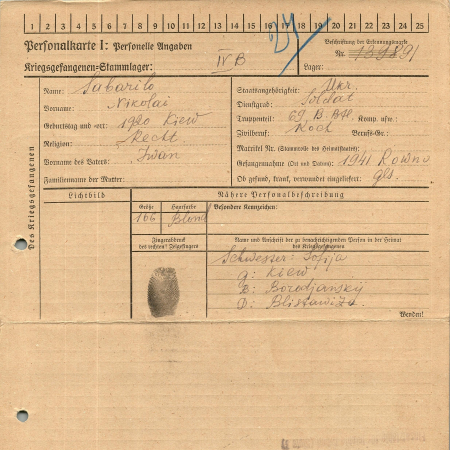 1 2 3 4 5 6 7 8 9 10 11 12 13 14 15 16 17 18 19 20 21 22 23 24 25
Personalkarte I: Personelle Angaben
Kriegsgefangenen-Stammlager: IV B
Beschriftung der Erkennungsmarke
Nr.
Lager:
Des Kriegsgefangenen
Name: Sabarilo
Vorname: Nikolai
Geburtstag und -ort: 1920 Kiew
Religion: Recht.
Vorname des Vaters: Iwan
Familienname der Mutter:
Staatsangehörigkeit: Ukr.
Dienstgrad: Soldat
Truppenteil: 69. Komp. usw.:
Zivilberuf: Koch Berufs-Gr.:
Matrikel Nr. (Stammrolle des Heimatstaates):
Gefangennahme (Ort und Datum): 1941 Rowno
Ob gesund, krank, verwundet eingeliefert: gs.
Lichtbild
Nähere Personalbeschreibung
Größe Haarfarbe Besondere Kennzeichen:
166 Blond
Fingerabdruck
des rechten Zeigefingers
Name und Anschrift der zu benachrichtigenden Person in der Heimat
des Kriegsgefangenen
Schwester: Sofija
G: Kiew
B: Borodjanskij
D: Blistawiza
Wenden!